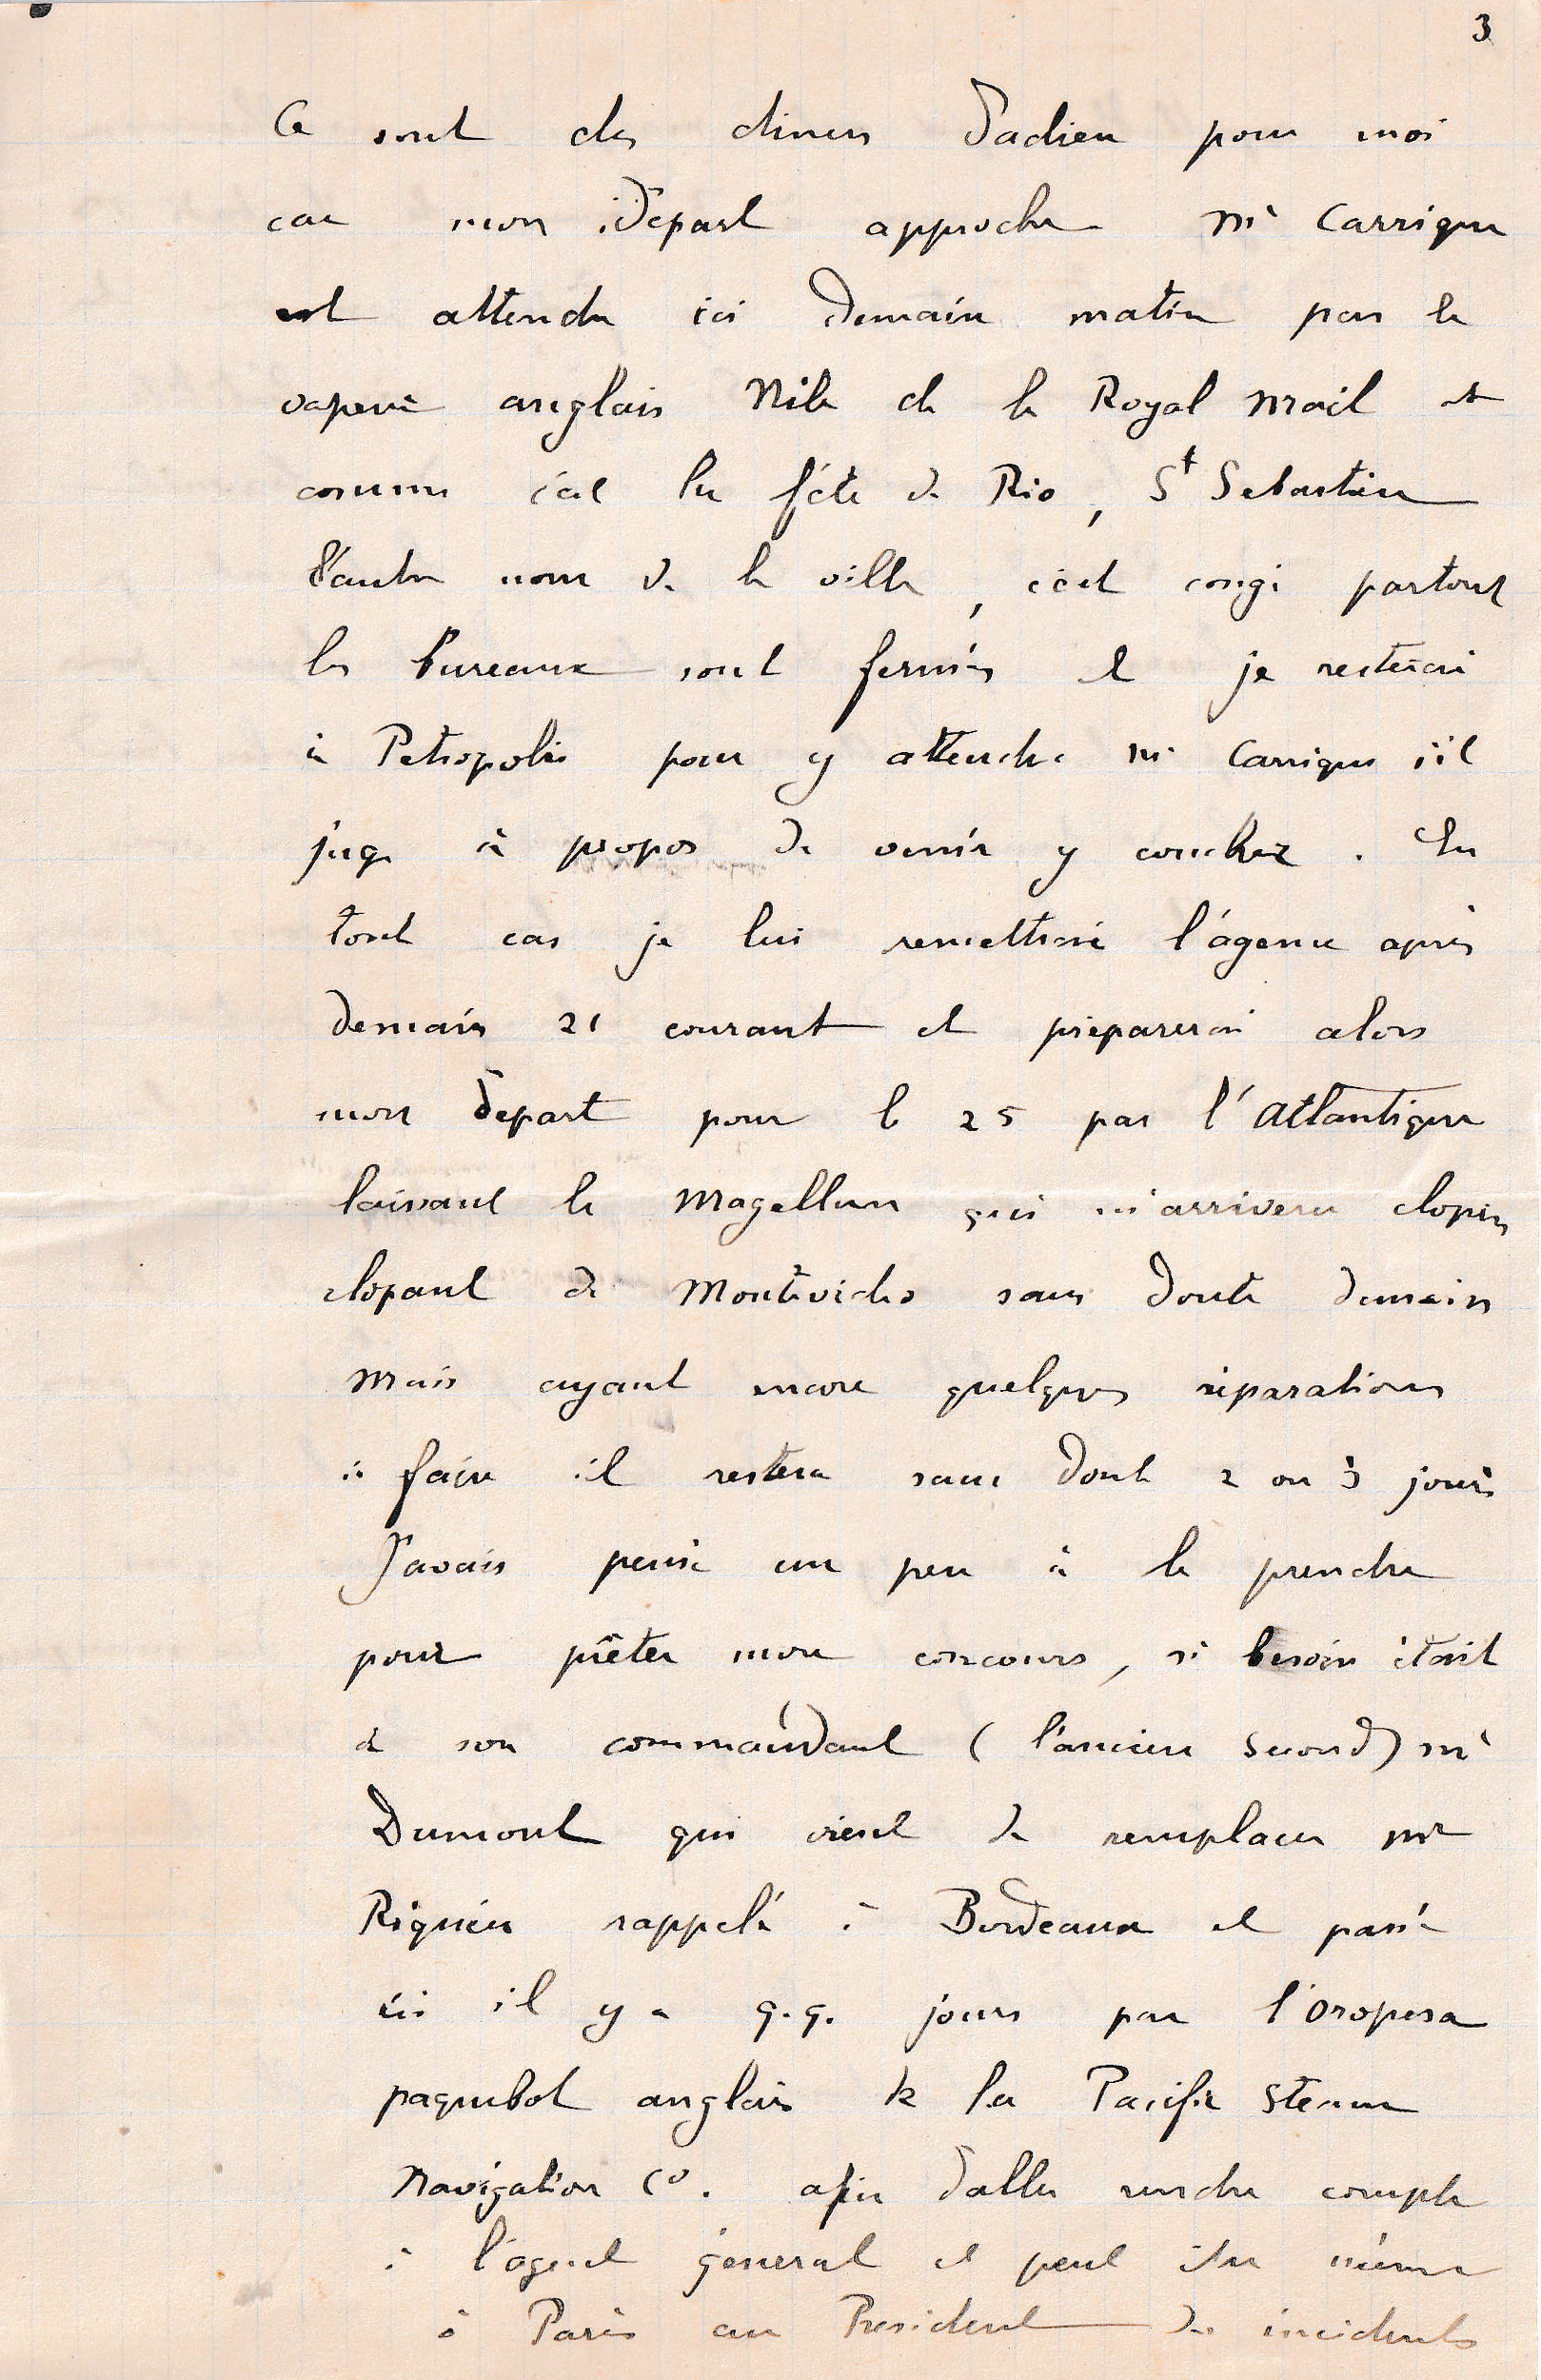 3
Ce sont des diners d'adieu pour moi
car mon départ approche Mr Carrique
est attendu ici demain matin par le
vapeur anglais Nile de la Royal Mail et
comme c'est la fête de Rio, St Sebastien
l'autre nom de la ville, c'est congé partout
les bureaux sont fermés et je resterai
à Petropolis pour y attendre Mr Carrique s'il
juge à propos de venir y coucher. En
tout cas je lui remettrai l'agence après
demain 21 courant et préparerai alors
mon départ pour le 25 par l'Atlantique
laissant le Magellan qui m'arrivera clopin
clopant de Montévideo sans doute demain
mais ayant encore quelques réparations
à faire il restera sans doute 2 ou 3 jours
J'avais pensé un peu à le prendre
pour prêter mon concours, si besoin était
à son commandant (l'ancien second) Mr
Dumont qui vient de remplacer Mr
Riquier rappelé à Bordeaux et passé
ici il y a q.q. jours par l'Oropesa
paquebot anglais de la Pacific Steam
Navigation Co. afin d'aller rendre compte
à l'agent général et peut être même
à Paris au Président des incidents